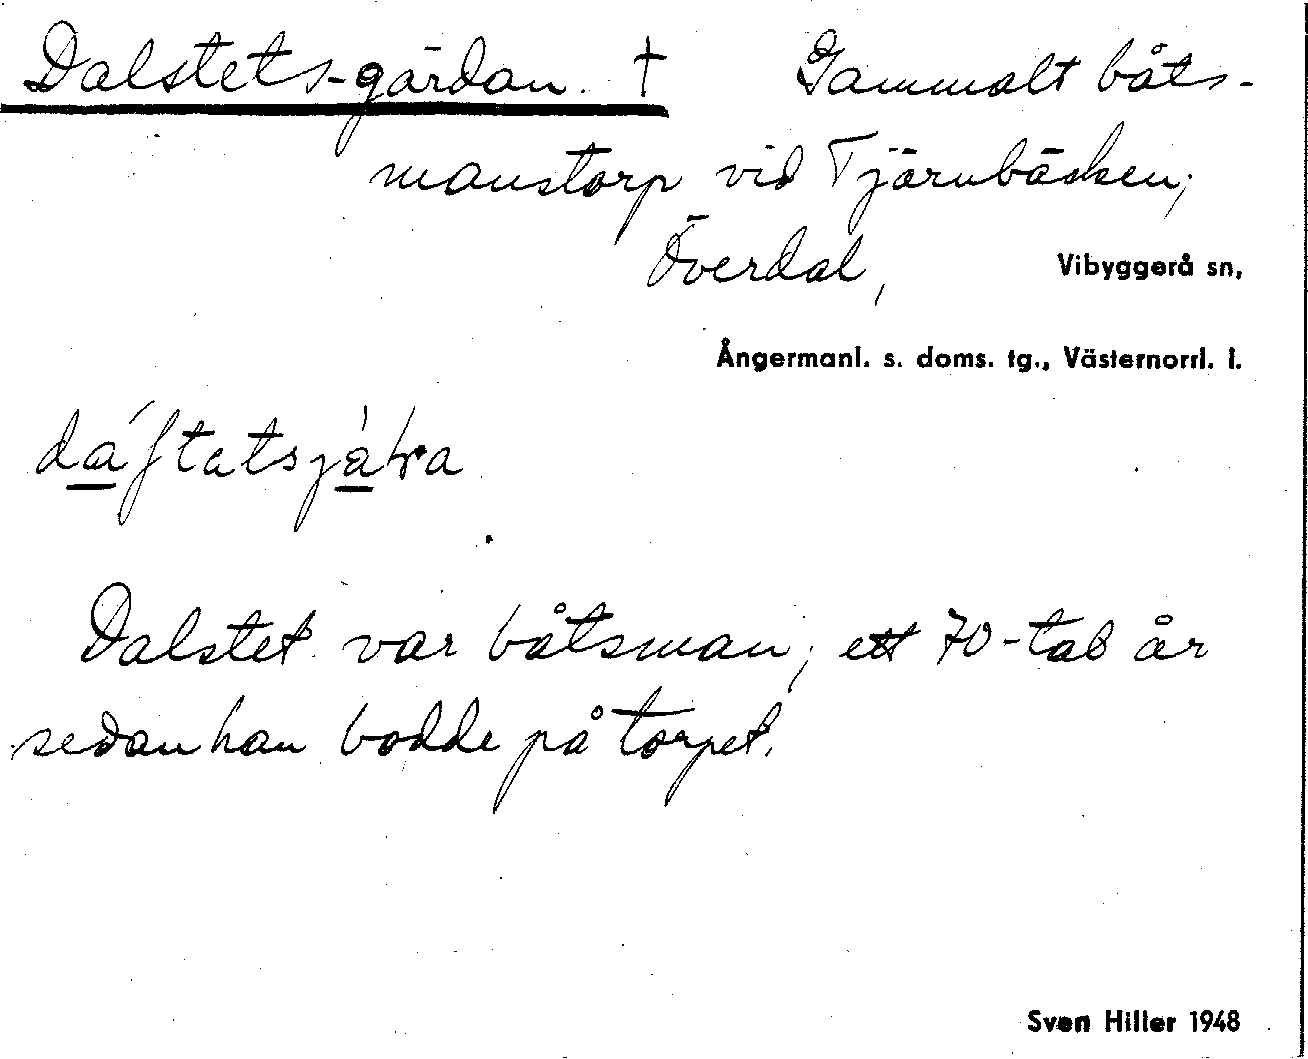 Dalstets-gärdan. † Gammalt båts-
manstorp vid Tjärnbäcken,
Överdal, Vibyggerå sn,
Ångermanl. s. doms. tg., Västernorrl. l.
Dalstet var båtsman; ett 70-tal år
sedan han bodde på torpet.
Sven Hiller 1948